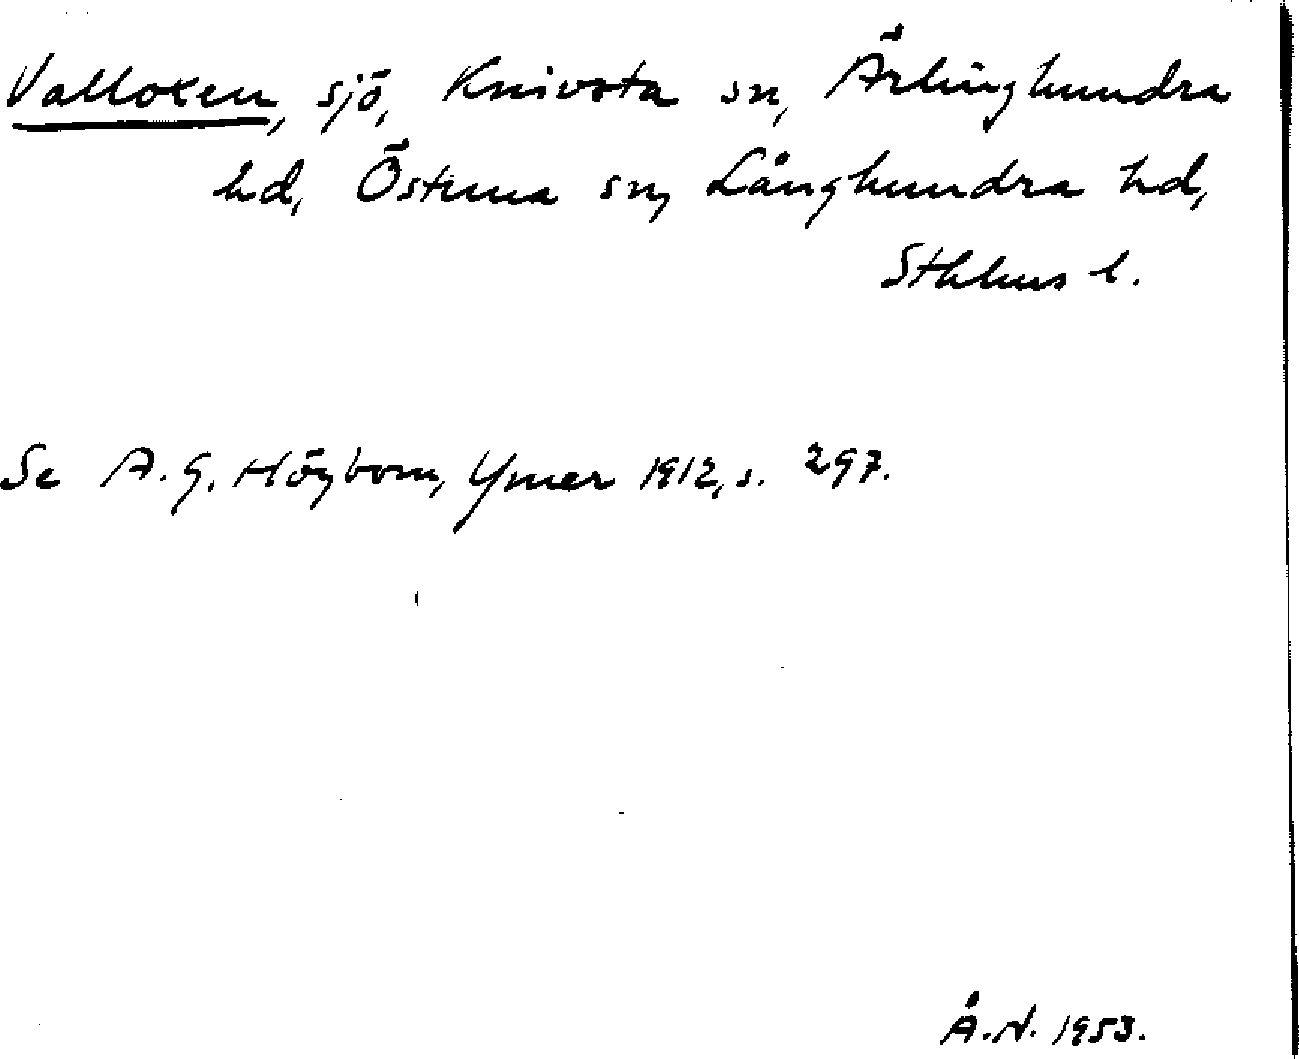 Valloxen, sjö, Knivsta sn, Ärlinghundra
hd, Östuna sn, Långhundra hd,
Sthlms l.
Se A. G. Högbom, Ymer 1912, s. 297.
Å. N. 1953.